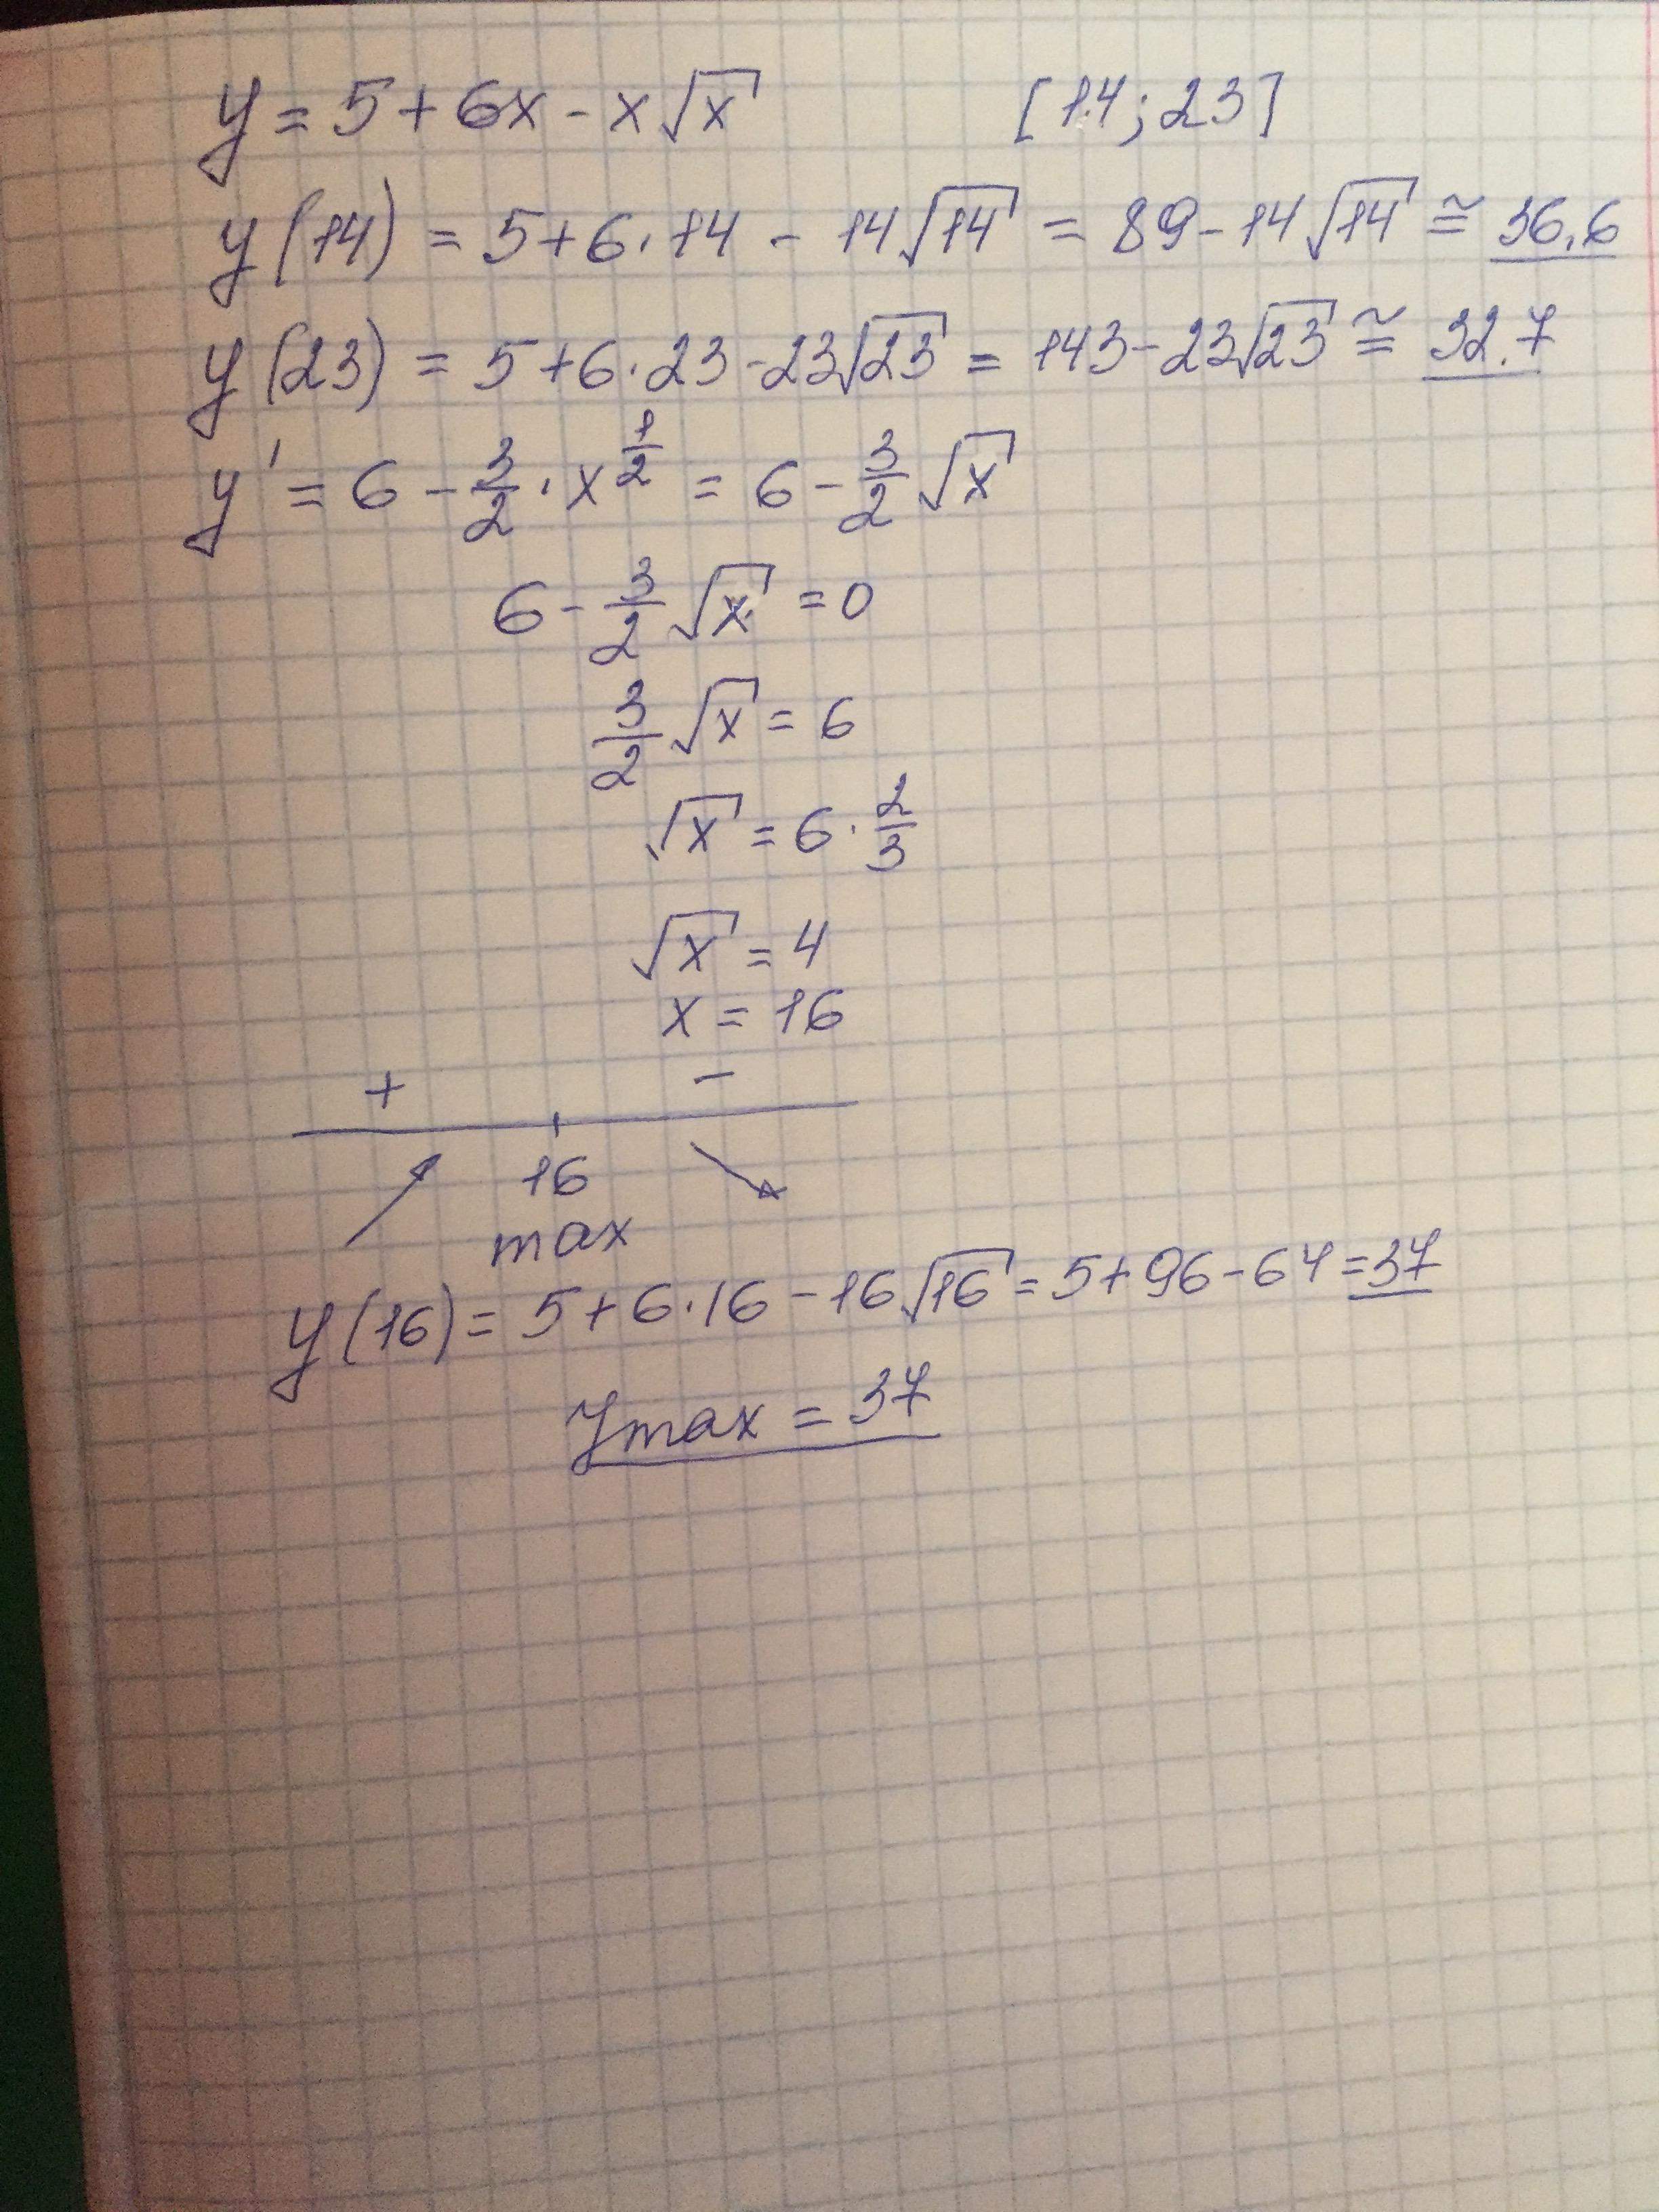 y = 5 + 6x - x√x [14; 23]
y(14) = 5 + 6 · 14 - 14√14 = 89 - 14√14 ≅ 36.6
y(23) = 5 + 6 · 23 - 23√23 = 143 - 23√23 ≅ 32.7
y' = 6 - 3/2 · x^(1/2) = 6 - 3/2 √x
6 - 3/2 √x = 0
3/2 √x = 6
√x = 6 · 2/3
√x = 4
x = 16
+ -
16
max
y(16) = 5 + 6 · 16 - 16√16 = 5 + 96 - 64 = 37
ymax = 37